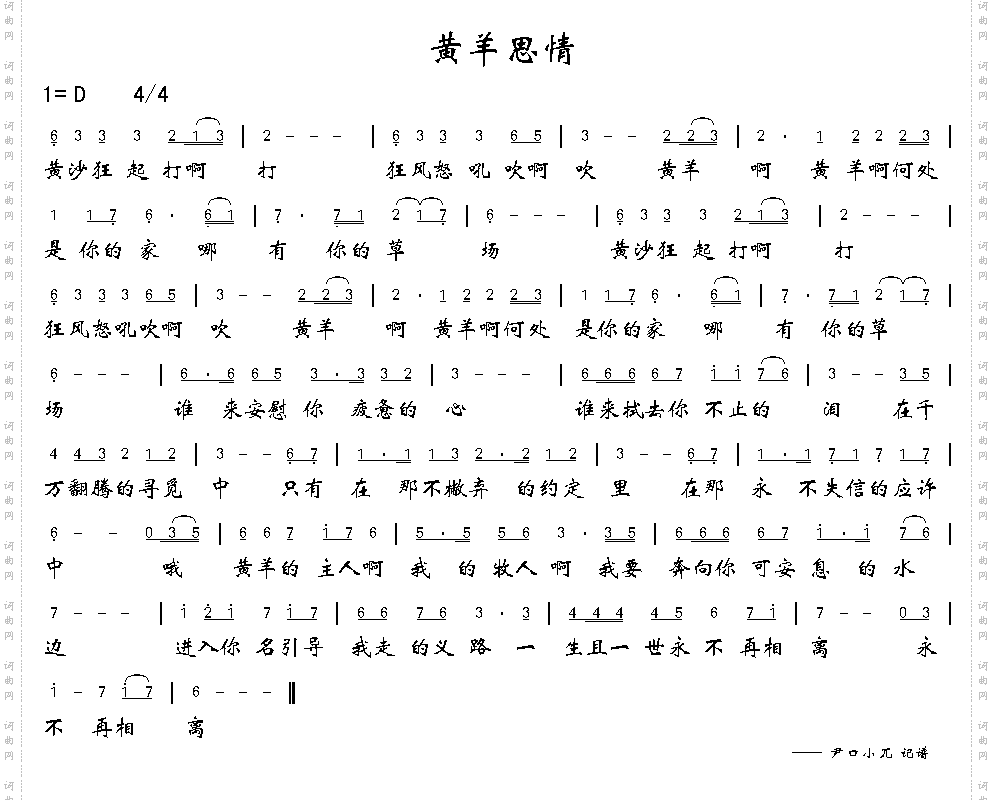 黄羊思情
1=D 4/4
6 3 3 3 2 1 3 | 2 - - - | 6 3 3 3 6 5 | 3 - - 2 2 3 | 2 · 1 2 2 2 3 |
黄沙狂 起 打啊 打 狂风怒 吼 吹啊 吹 黄羊 啊 黄 羊啊何处
1 1 7 6 · 6 1 | 7 · 7 1 2 1 7 | 6 - - - | 6 3 3 3 2 1 3 | 2 - - - |
是 你的 家 哪 有 你的 草 场 黄沙狂 起 打啊 打
6 3 3 3 6 5 | 3 - - 2 2 3 | 2 · 1 2 2 2 3 | 1 1 7 6 · 6 1 | 7 · 7 1 2 1 7 |
狂风怒吼吹啊 吹 黄羊 啊 黄羊啊何处 是你的家 哪 有 你的草
6 - - - | 6 · 6 6 5 3 · 3 3 2 | 3 - - - | 6 6 6 6 7 i i 7 6 | 3 - - 3 5 |
场 谁 来安慰 你 疲惫的 心 谁来拭去你 不止的 泪 在千
4 4 3 2 1 2 | 3 - - 6 7 | 1 · 1 1 3 2 · 2 1 2 | 3 - - 6 7 | 1 · 1 7 1 7 1 7 |
万翻腾的寻觅 中 只有 在 那不撇弃 的约定 里 在那 永 不失信的应许
6 - - 0 3 5 | 6 6 7 i 7 6 | 5 · 5 5 6 3 · 3 5 | 6 6 6 6 7 i · i 7 6 |
中 哦 黄羊的 主人啊 我 的 牧人 啊 我要 奔向你 可安 息 的 水
7 - - - | i 2 i 7 i 7 | 6 6 7 6 3 · 3 | 4 4 4 4 5 6 7 i | 7 - - 0 3 |
边 进入你 名引导 我走 的义 路 一 生且一 世永 不 再相 离 永
i - 7 i 7 | 6 - - - ‖
不 再相 离
—— 尹口小兀 记谱
词曲网